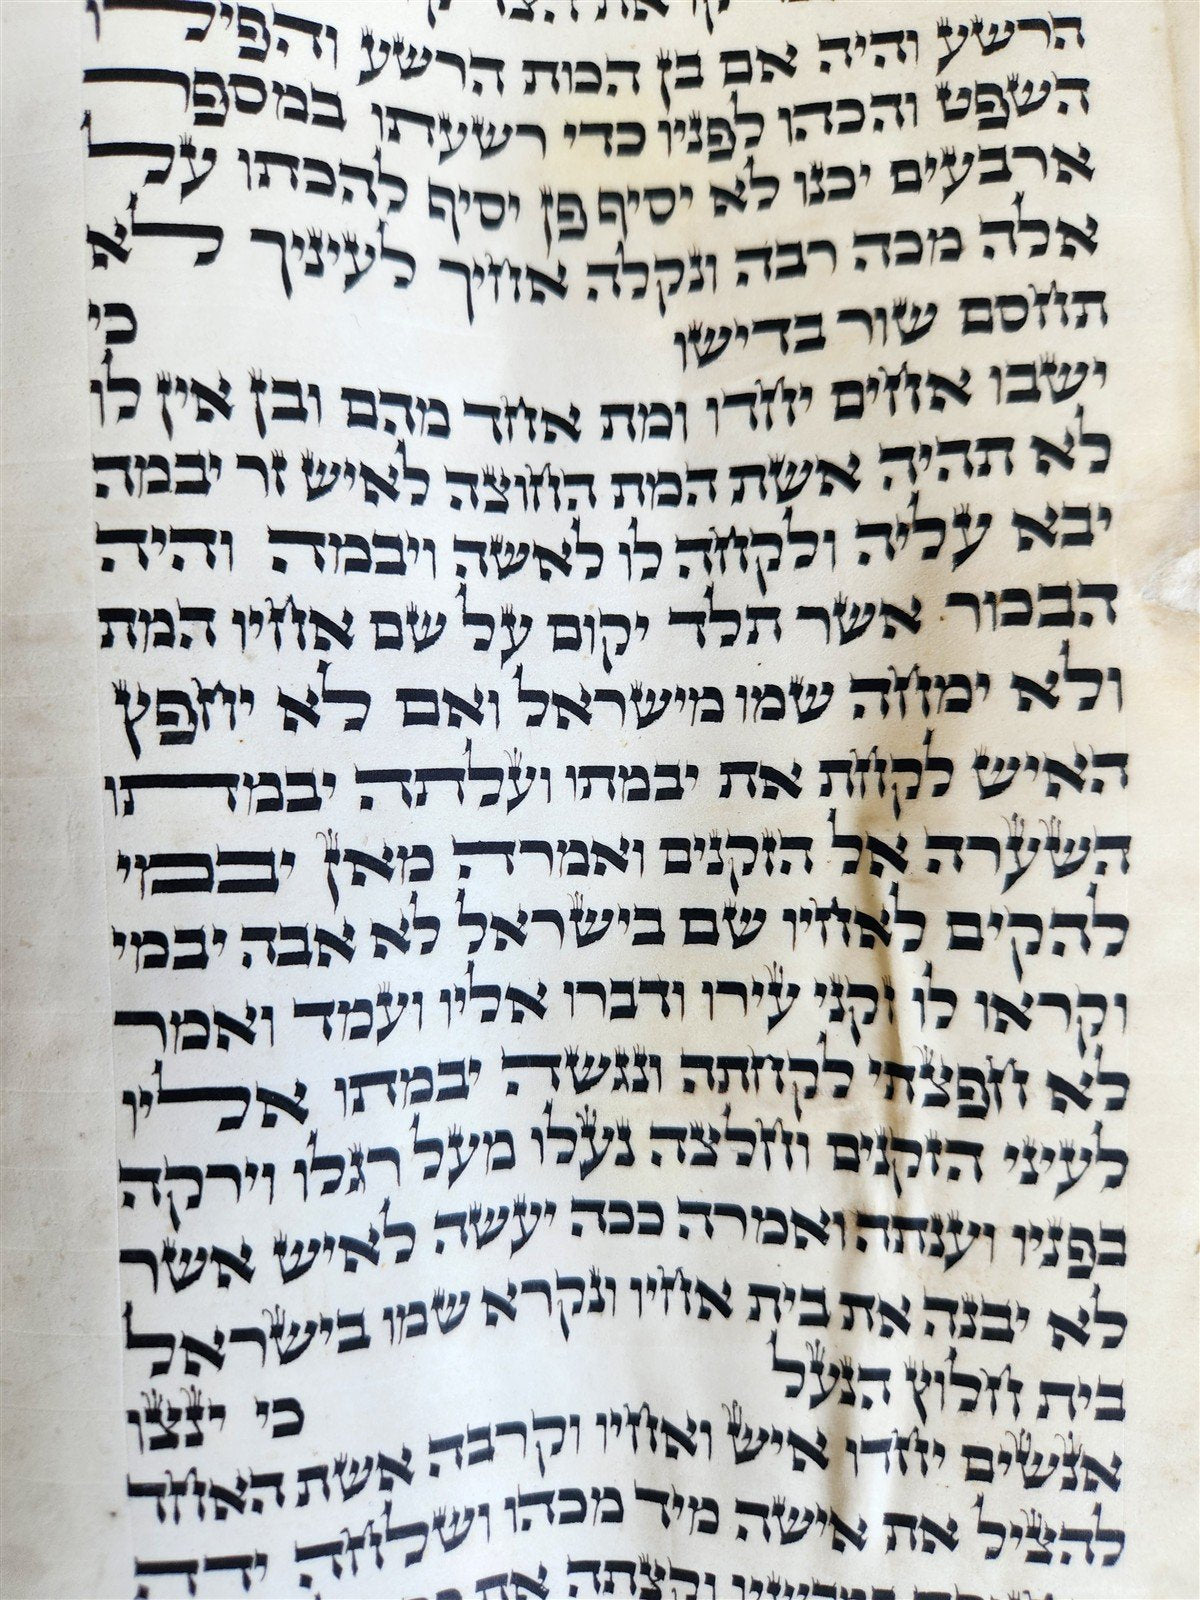 הרשע והיה אם בן הכות הרשע והפילו
השפט והכהו לפניו כדי רשעתו במספר
ארבעים יכנו לא יסיף פן יסיף להכתו על
אלה מכה רבה ונקלה אחיך לעיניך לא
תחסם שור בדישו כי
ישבו אחים יחדו ומת אחד מהם ובן אין לו
לא תהיה אשת המת החוצה לאיש זר יבמה
יבא עליה ולקחה לו לאשה ויבמה והיה
הבכור אשר תלד יקום על שם אחיו המת
ולא ימחה שמו מישראל ואם לא יחפץ
האיש לקחת את יבמתו ועלתה יבמתו
השערה אל הזקנים ואמרה מאין יבמי
להקים לאחיו שם בישראל לא אבה יבמי
וקראו לו זקני עירו ודברו אליו ועמד ואמר
לא חפצתי לקחתה ונגשה יבמתו אליו
לעיני הזקנים וחלצה נעלו מעל רגלו וירקה
בפניו וענתה ואמרה ככה יעשה לאיש אשר
לא יבנה את בית אחיו ונקרא שמו בישראל
בית חלוץ הנעל
כי ינצו
אנשים יחדו איש ואחיו וקרבה אשת האחד
להציל את אישה מיד מכהו ושלחה ידה
וקצתה את